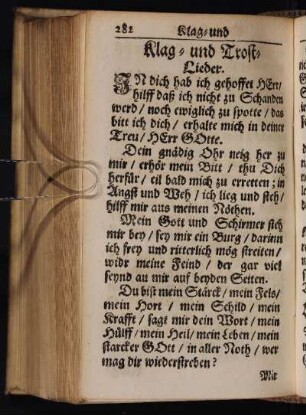 282 Klag- und
Klag- und Trost-
Lieder.
IN dich hab ich gehoffet HErr/
hilff daß ich nicht zu Schanden
werd/ noch ewiglich zu spotte/ das
bitt ich dich/ erhalte mich in deiner
Treu/ HErr GOtte.
Dein gnädig Ohr neig her zu
mir/ erhör mein Bitt/ thu Dich
herfür/ eil bald mich zu erretten; in
Angst und Weh/ ich lieg und steh/
hilff mir aus meinen Nöthen.
Mein Gott und Schirmer steh
mir bey/ sey mir ein Burg/ darinn
ich frey und ritterlich mög streiten/
widr meine Feind/ der gar viel
seynd an mir auf beyden Seiten.
Du bist mein Stärck/ mein Fels/
mein Hort/ mein Schild/ mein
Krafft/ sagt mir dein Wort/ mein
Hülff/ mein Heil/ mein Leben/ mein
starcker GOtt/ in aller Noth/ wer
mag dir wiederstreben?
Mit